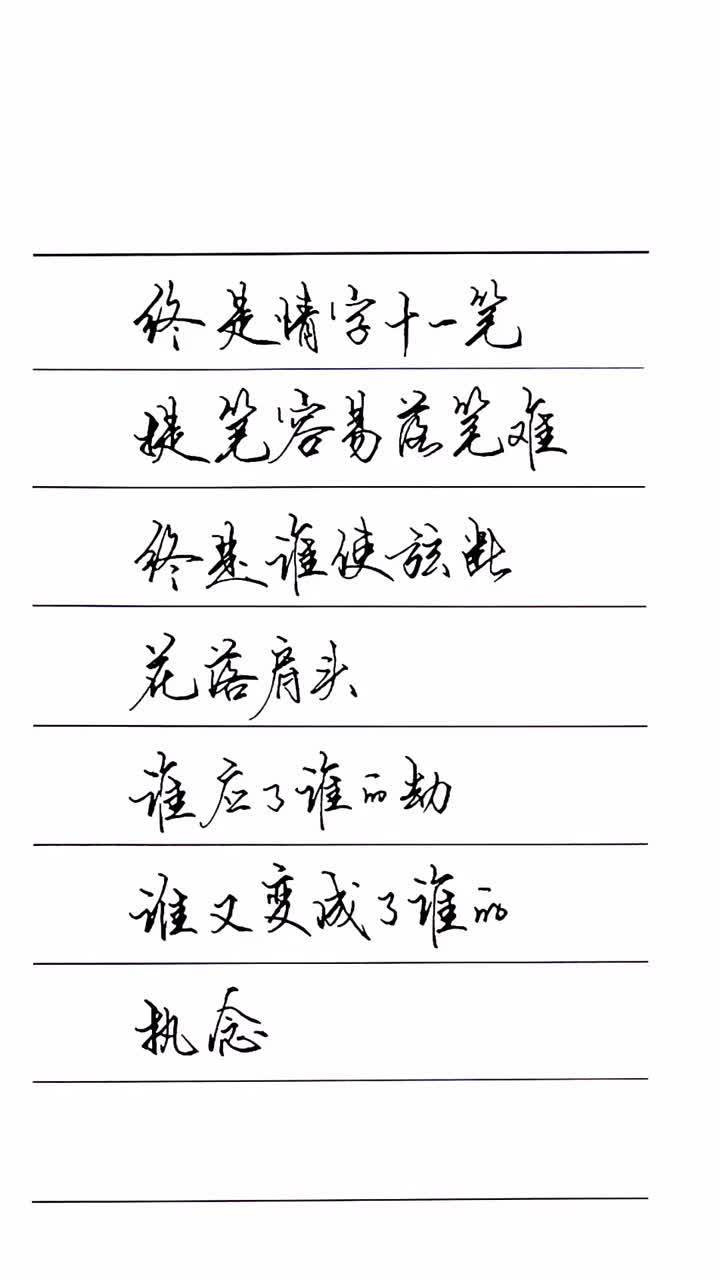 终是情字十一笔
提笔容易落笔难
终是谁使弦断
花落肩头
谁应了谁的劫
谁又变成了谁的
执念